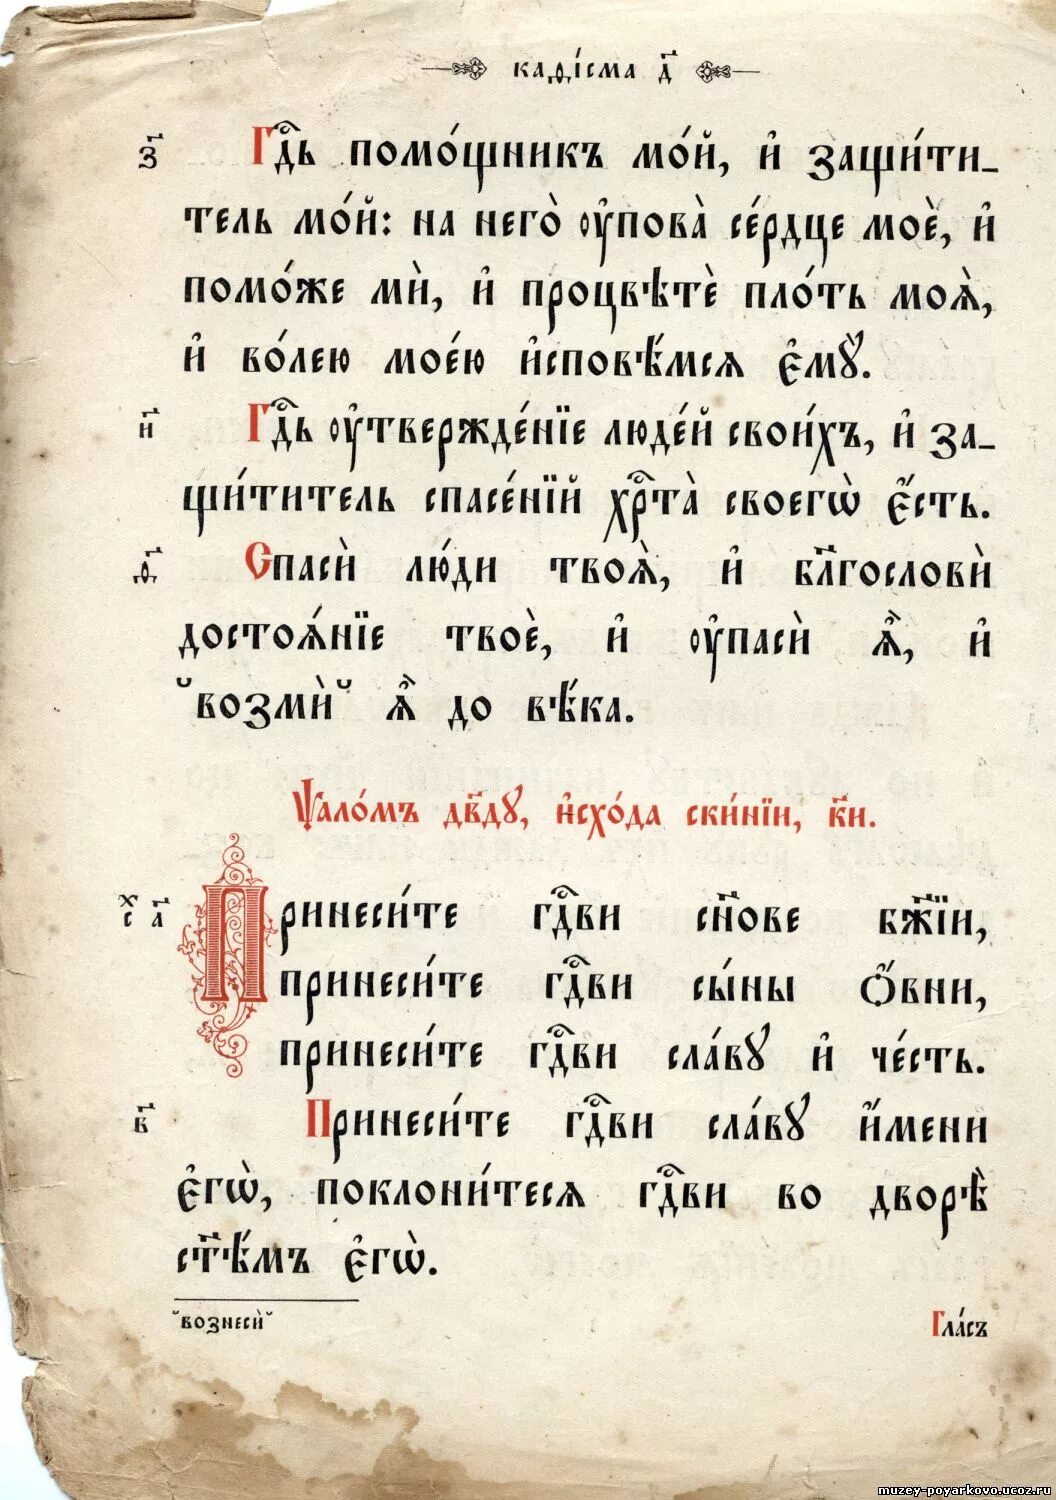 каѳі́сма д҃
з҃ Гд҇ь помо́щникъ мо́й, и҆ защи́ти_
тель мо́й: на него̀ ᲂу҆пова̀ се́рдце моѐ, и҆
помо́же мѝ, и҆ процвѣтѐ пло́ть моѧ̀,
и҆ во́лею мое́ю и҆сповѣ́мсѧ є҆мꙋ̀.
и҃ Гд҇ь ᲂу҆твержде́нїе люде́й свои́хъ, и҆ за_
щи́титель спасе́нїй хрⷭ҇та̀ своегѡ̀ є҆́сть.
ѳ҃ Спасѝ лю́ди твоѧ̀, и҆ бл҃гословѝ
достоѧ́нїе твоѐ, и҆ ᲂу҆пасѝ ѧ҆̀, и҆
˘возмѝ˘ ѧ҆̀ до вѣ́ка.
Ѱало́мъ дв҃дꙋ, и҆схо́да ски́нїи, к҃и.
хс а҃ Принеси́те гдⷭ҇ви сн҃ове бж҃їи,
принеси́те гдⷭ҇ви сы́ны ѻ҆́вни,
принеси́те гдⷭ҇ви сла́вꙋ и҆ че́сть.
в҃ Принеси́те гдⷭ҇ви сла́вꙋ и҆́мени
є҆гѡ̀, поклони́тесѧ гдⷭ҇ви во дворѣ̀
ст҃ѣ́мъ є҆гѡ̀.
˘вознесѝ˘
Гла́съ
muzey-poyarkovo.ucoz.ru